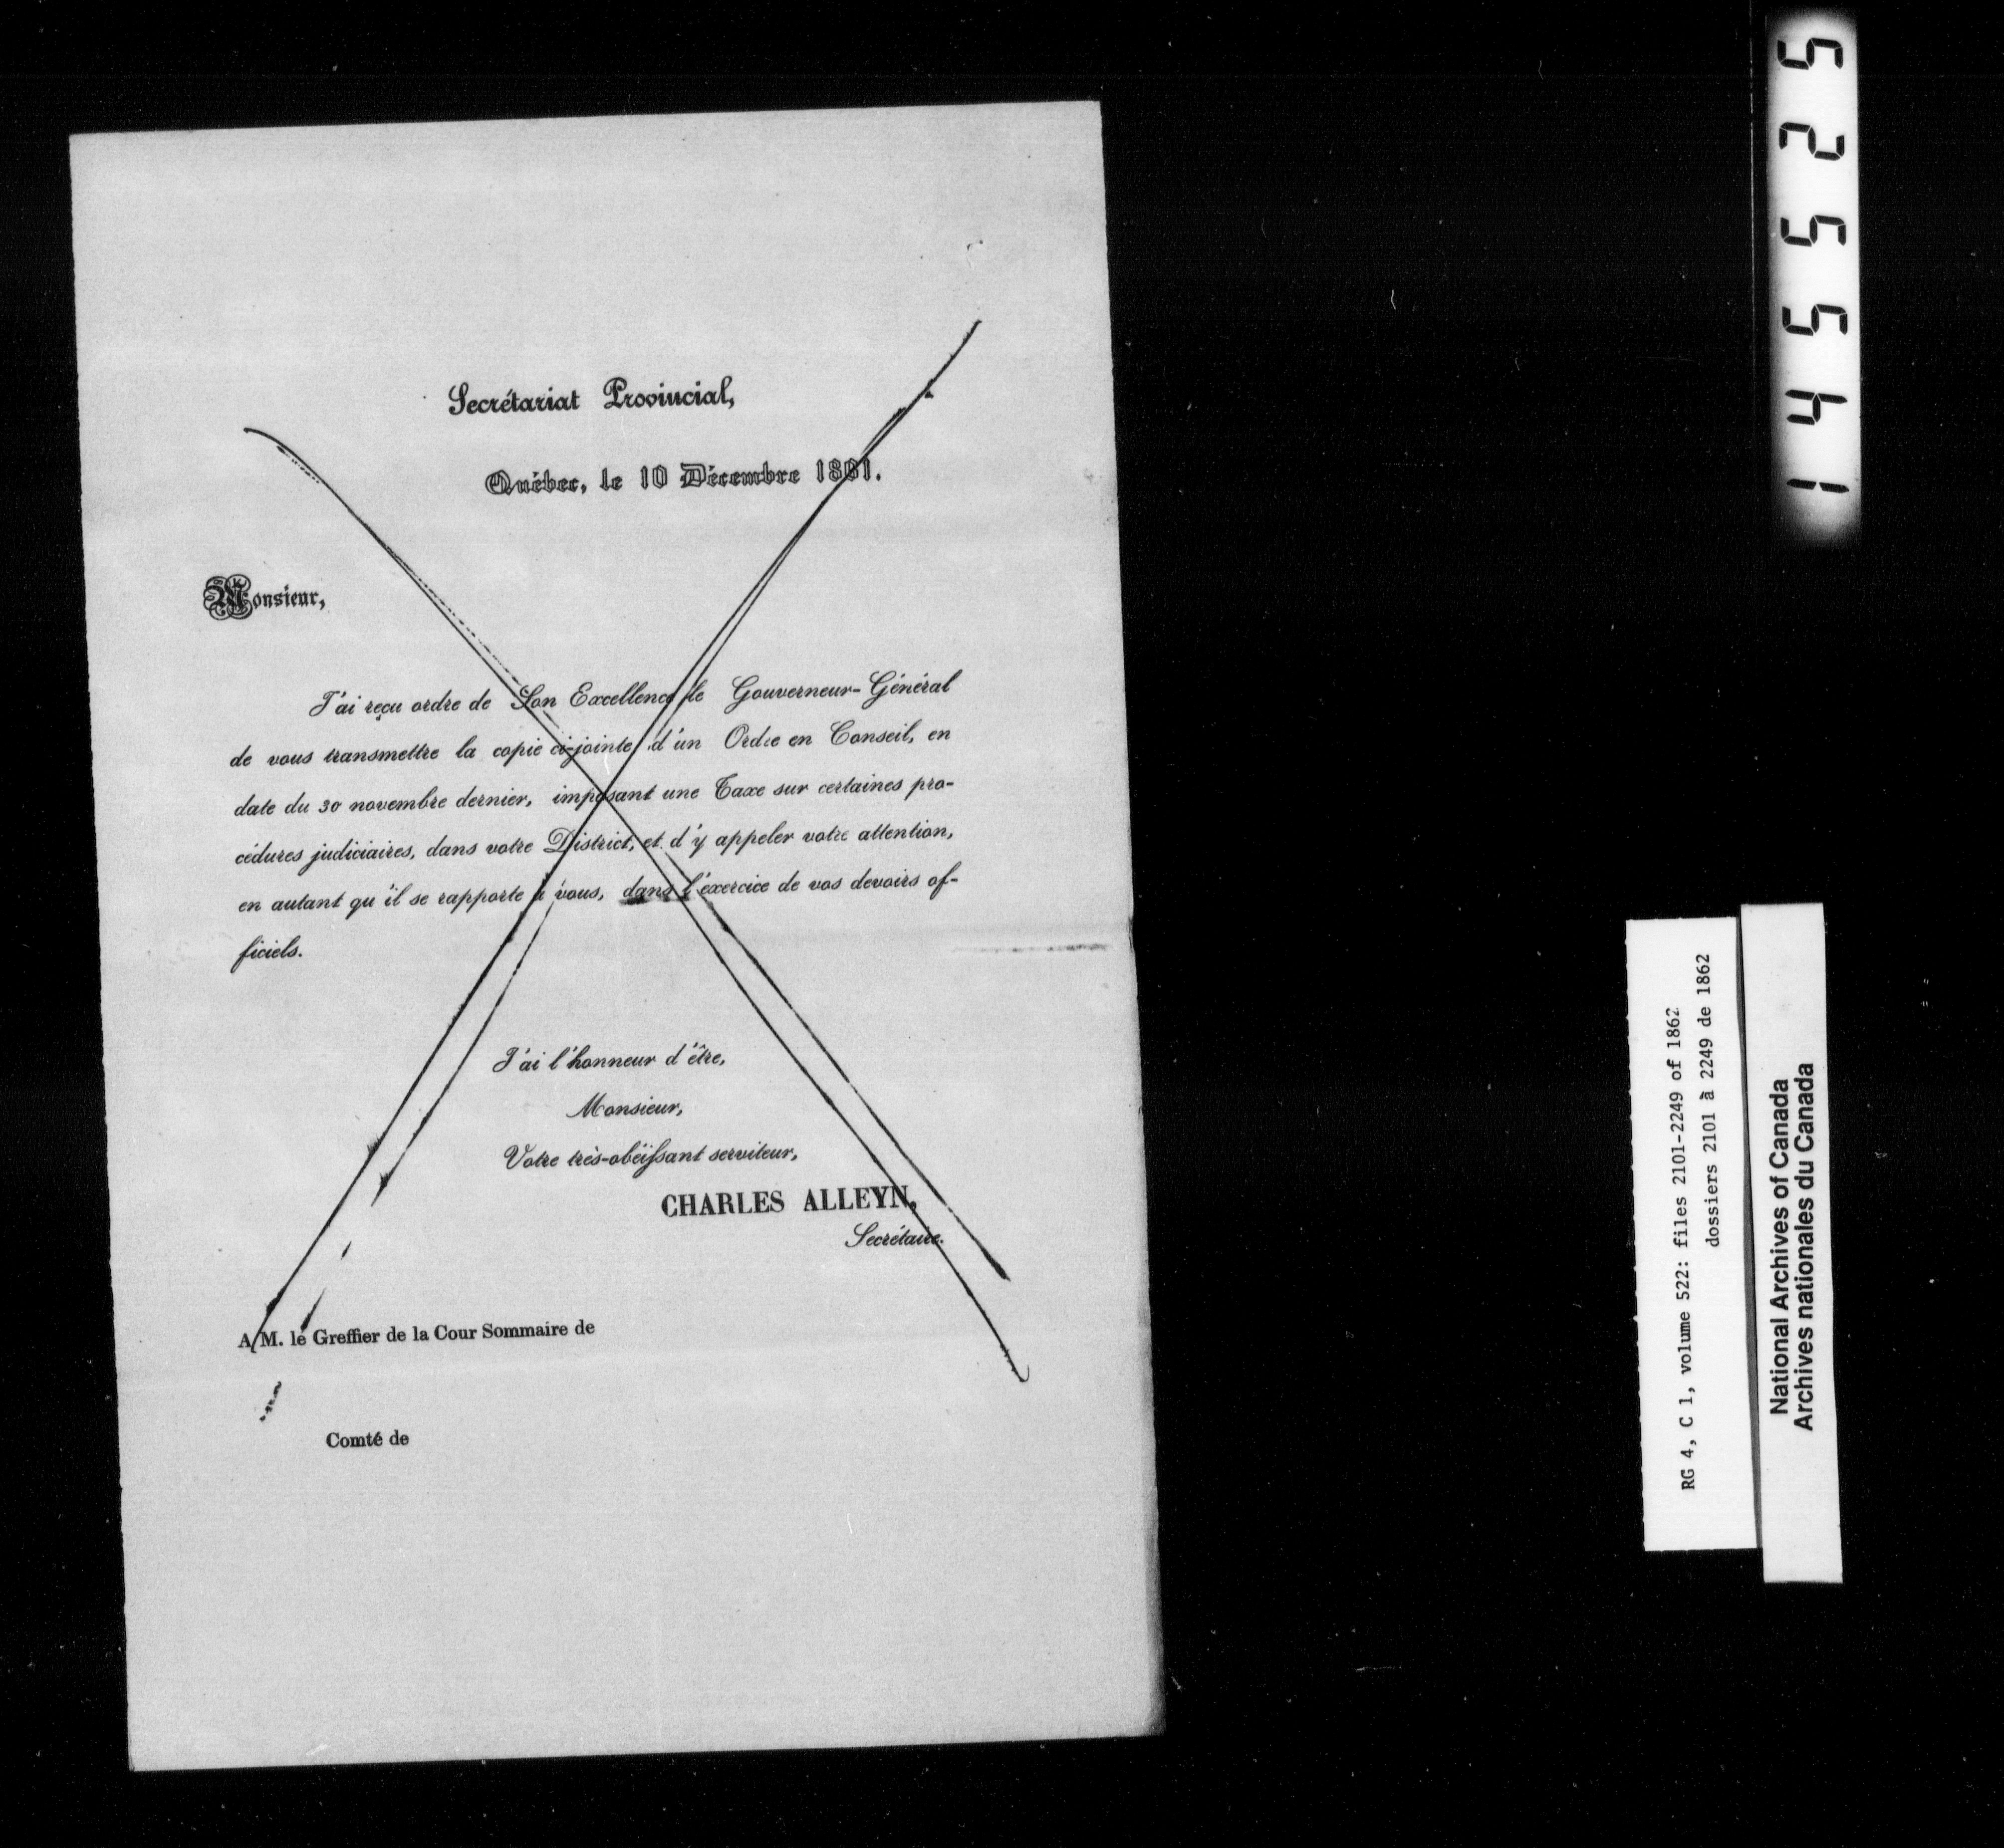 Secrétariat Provincial,
Québec, le 10 Décembre 1861.
Monsieur,
J'ai reçu ordre de Son Excellence le Gouverneur-Général
de vous transmettre la copie ci-jointe d'un Ordre en Conseil, en
date du 30 novembre dernier, imposant une Taxe sur certaines pro-
cédures judiciaires, dans votre District, et d'y appeler votre attention,
en autant qu'il se rapporte à vous, dans l'exercice de vos devoirs of-
ficiels.
J'ai l'honneur d'être,
Monsieur,
Votre très-obéissant serviteur,
CHARLES ALLEYN,
Secrétaire.
A M. le Greffier de la Cour Sommaire de
Comté de
145525
RG 4, C 1, volume 522: files 2101-2249 of 1862
dossiers 2101 à 2249 de 1862
National Archives of Canada
Archives nationales du Canada